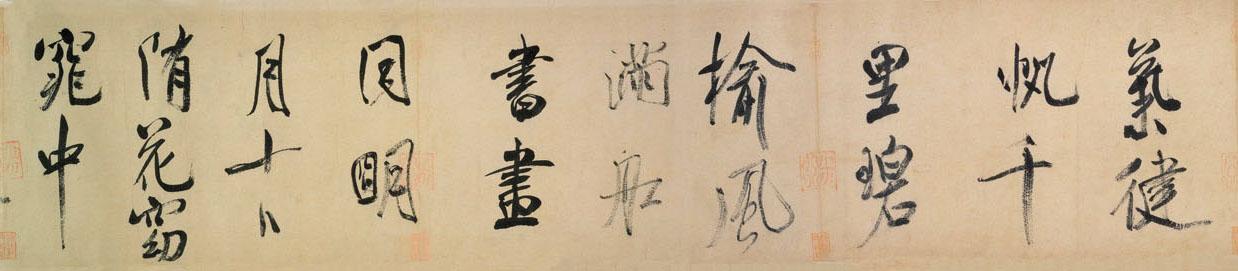 氣健
帆千
里碧
榆風
滿舡
書畫
同明
月十日
隨花窈
窕中